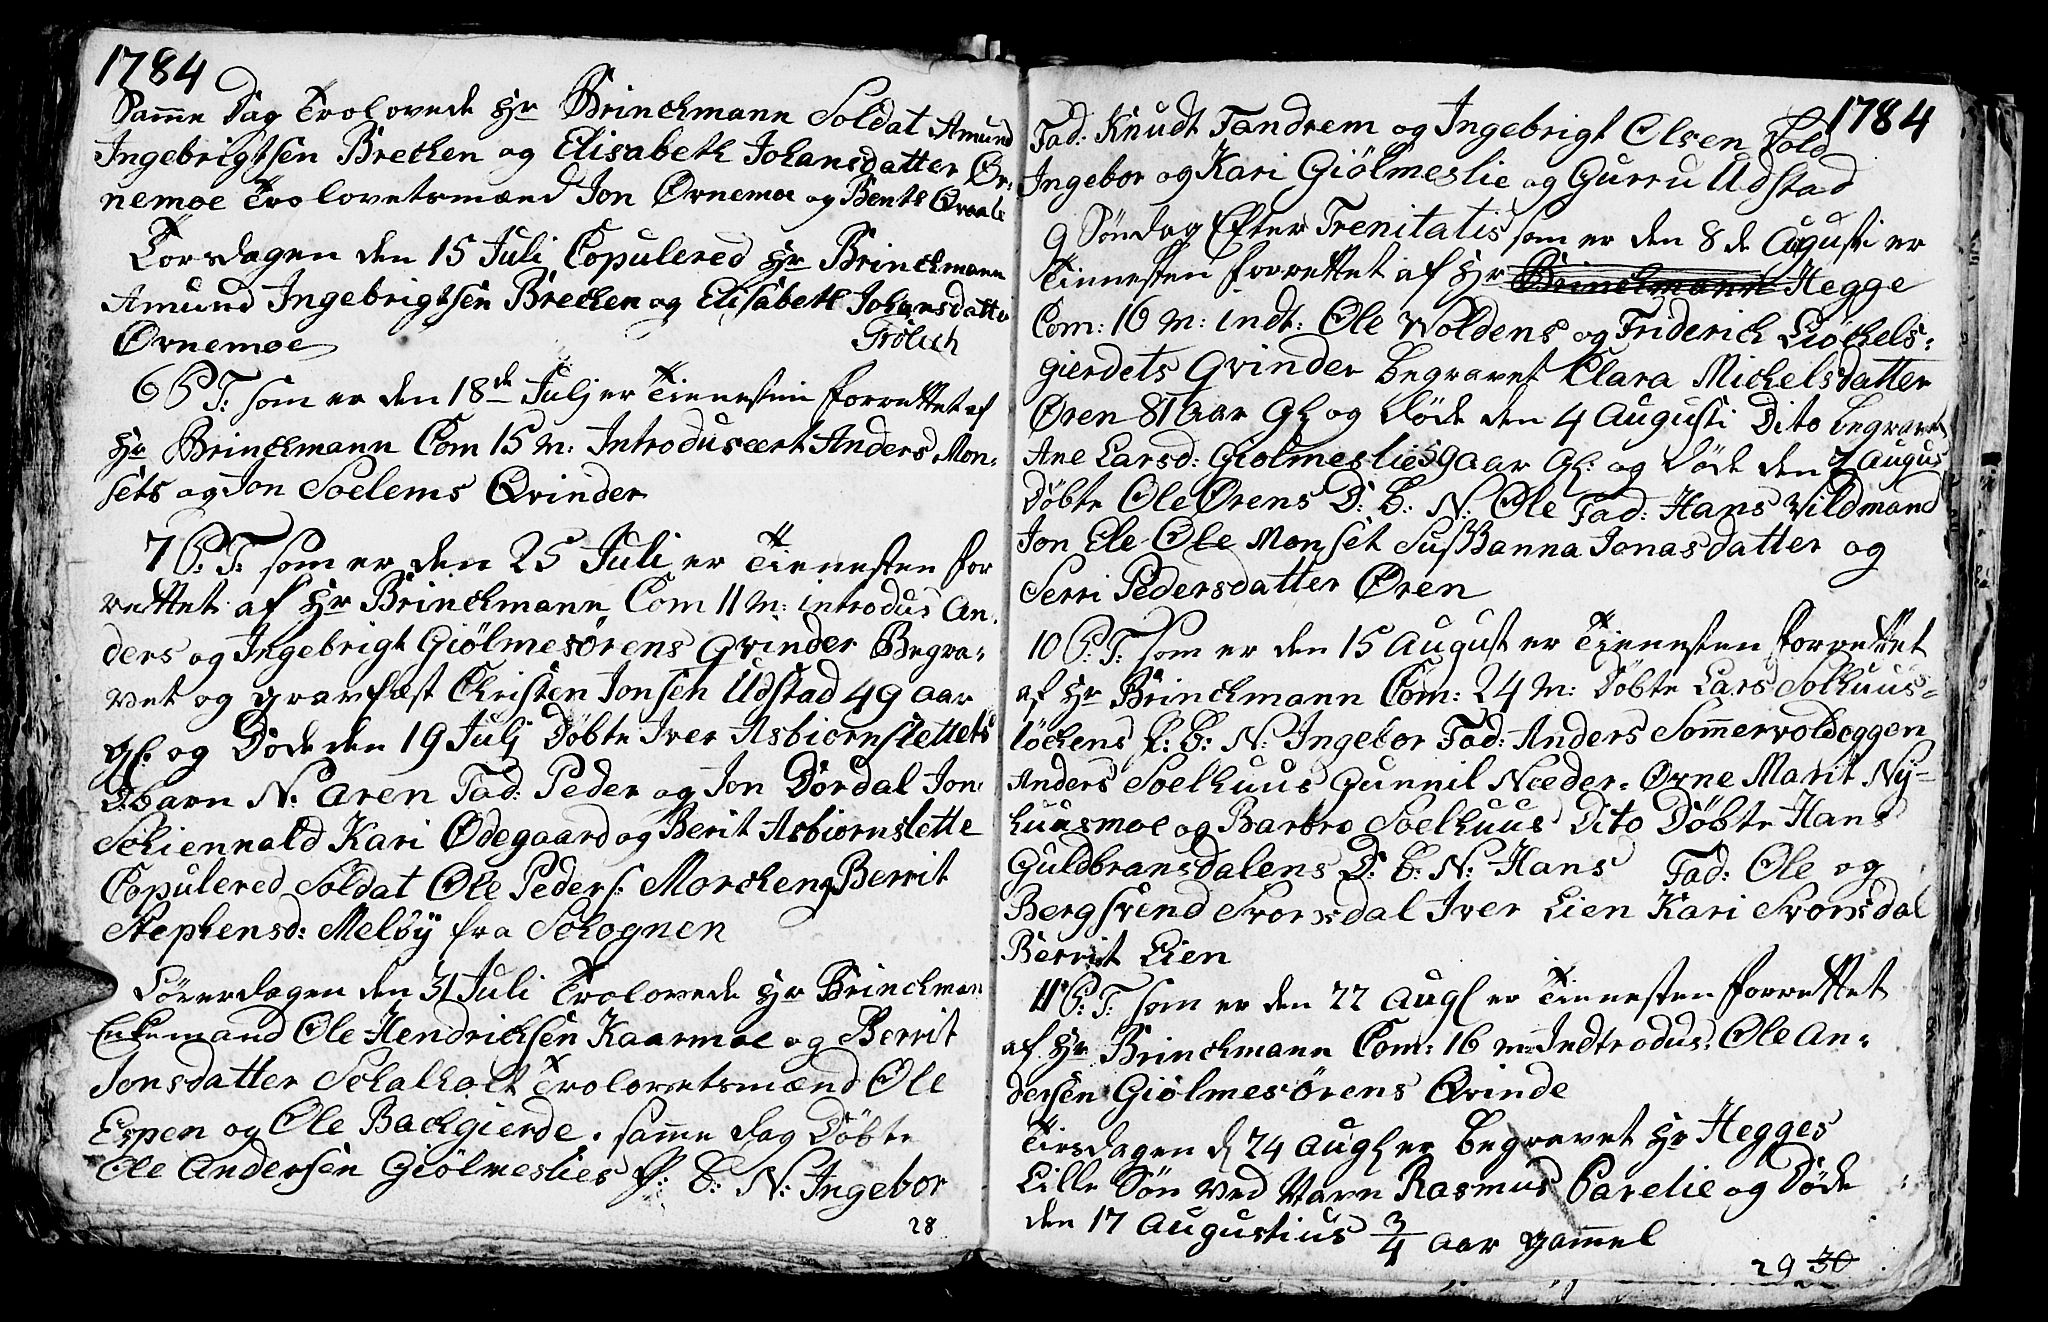 1784
Samme Dag Trolovede Hr Brinchmann Soldat Amund
Ingebrigtsen Brechen og Elisabeth Johansdatter Ør-
nemoe Trolovetsmænd Jon Ørnemoe og Bent
Torsdagen den 15 Juli Copulered Hr Brinchmann
Amund Ingebrigtsen Brechen og Elisabeth Johansdatte
Ørnemoe Frölich
6 S T: som er den 18de Julj er Tiennesten forrettet af
Hr Brinchmann Com 15 m: Introduseert Anders Mon-
sets og Jon Soelems Qvinder
7 S: T: som er den 25 Juli er Tiennesten for
rettet af Hr Brinchmann Com 11 m: introdus An-
ders og Ingebrigt Giølmesørens Qvinder Begra-
vet og gravfæst Christen Jonsen Udstad 49 aar
gl: og Døde den 19 Julj Döbte Iver Asbiørnslettets
D barn N: Aren Fad: Peder og Jon Dørdal Jon
Schiennald Kari Ødegaard og Berit Asbiørnslette
Copulered Soldat Ole Peders: Morchen og Berrit
Stephensd: Melbÿ fra Schognen
Løverdagen den 31 Juli Trolovede Hr Brinchman
Enkemand Ole Hendrichsen Kaarmoe og Berrit
Jonsdatter Schalholt Trolovetsmænd Ole
Espen og Ole Bachgierde. samme dag Döbte
Ole Andersen Giølmeslies P: B: N: Ingebor
28
1784
Fad: Knudt Tandrem og Ingebrigt Olsen Fold
Ingebor og Kari Giölmeslie og Gurru Udstad
9 Söndag Efter Trenitatis som er den 8 de Agusti er
Tiennesten forrettet af Hr Brinchmann Hegge
Com: 16 m: indt: Ole Woldens og Friderich Liökels-
gierdets Qvinder begravet Clara Michelsdatter
Øren 81 Aar Gl og Døde den 4 Augusti Dito begravet
Ane Larsd: Giølmeslie 59 aar Gl: og Døde den 7 Augus
Döbte Ole Ørens D: B: N: Ole Fad: Hans Vildmand
Jon Ele Ole Monset Sussanna Jonasdatter og
Serri Pedersdatter Øren
10 S: T: som er den 15 August er Tiennesten forrettet
af Hr Brinchmann Com: 24 m: Döbte Lars Solhuus-
löckens P: B: N: Ingebor Fad: Anders Sommervoldeggen
Anders Soelhuus Gunnil Neder-Ørne Marit Nÿ-
huusmoe og Barbro Soelhuus Dito Döbte Hans
Guldbransdalens D: B: N: Hans Fad: Ole og
Bergsvend Svorsdal Iver Lien Kari Svorsdal
Berrit Lien
11 S: T: som er den 22 Augl er Tiennesten forrettet
af Hr Brinchmann Com: 16 m: Indtrodus: Ole An-
dersen Giølmesörens Qvinde
Tirsdagen d 24 Augl er begravet Hr Hegges
Lille Søn ved Navn Rasmus Parelie og Døde
den 17 Augustius 3/4 aar gammel
29 30